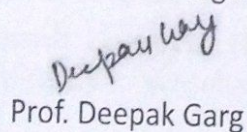 Deepak Garg
Prof. Deepak Garg